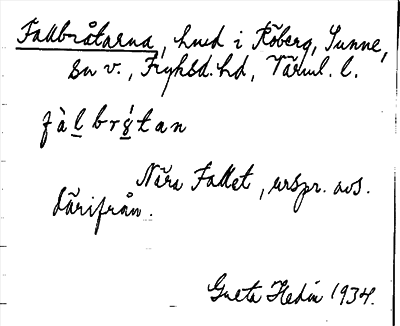 Fallbråtarna, hmd i Röberg, Sunne,
sn v., Fryksd. hd, Värml. l.
fàlbrǻtan
Nära Fallet, urspr. avs.
därifrån.
Greta Hedin 1934.